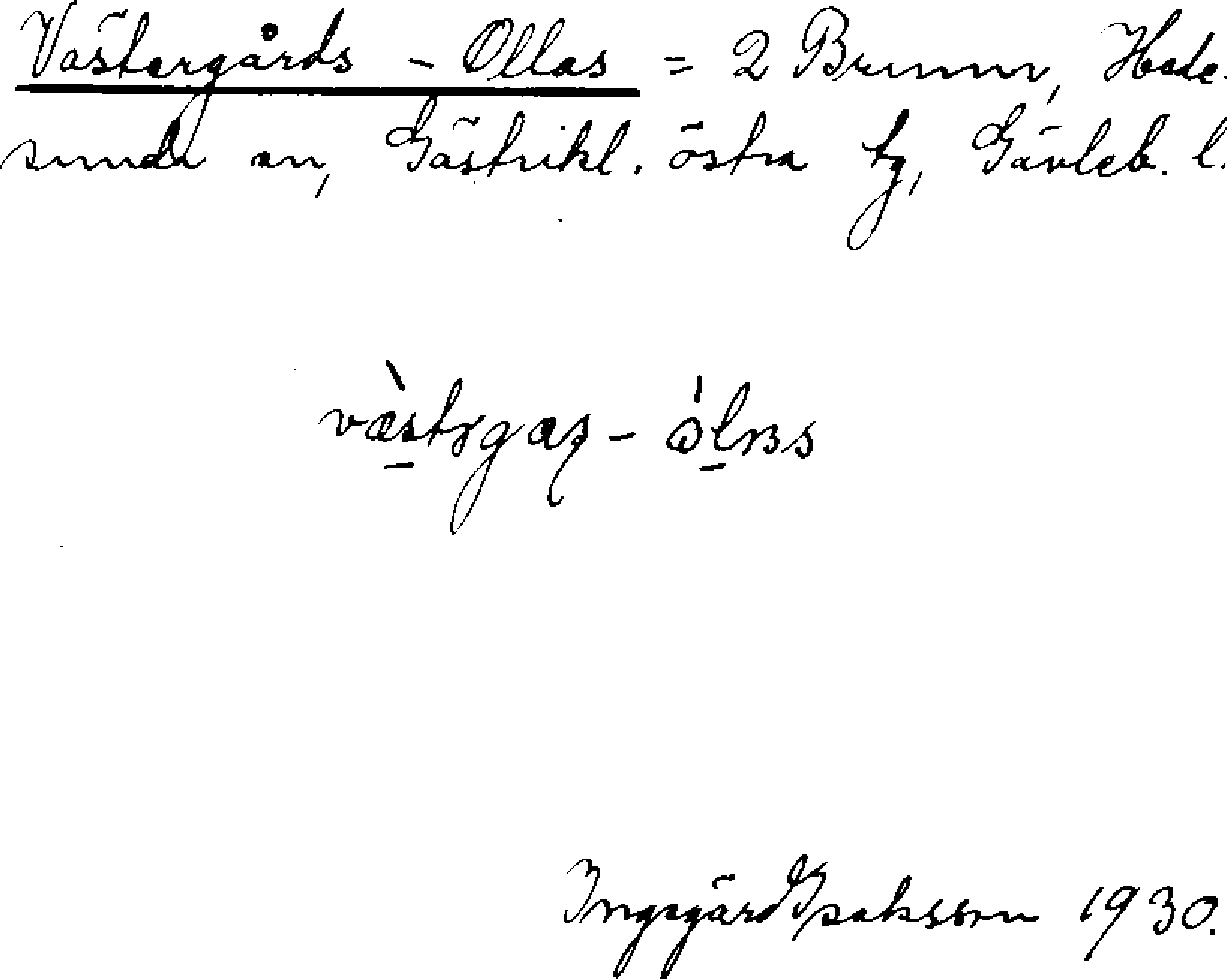 Västergårds - Ollas = 2 Brunn, Hede-
sunda sn, Gästrikl. östra tg, Gävleb. l.
væ̀str̥gaʂ - ɔ́lɐs
Ingegärd Isaksson 1930.